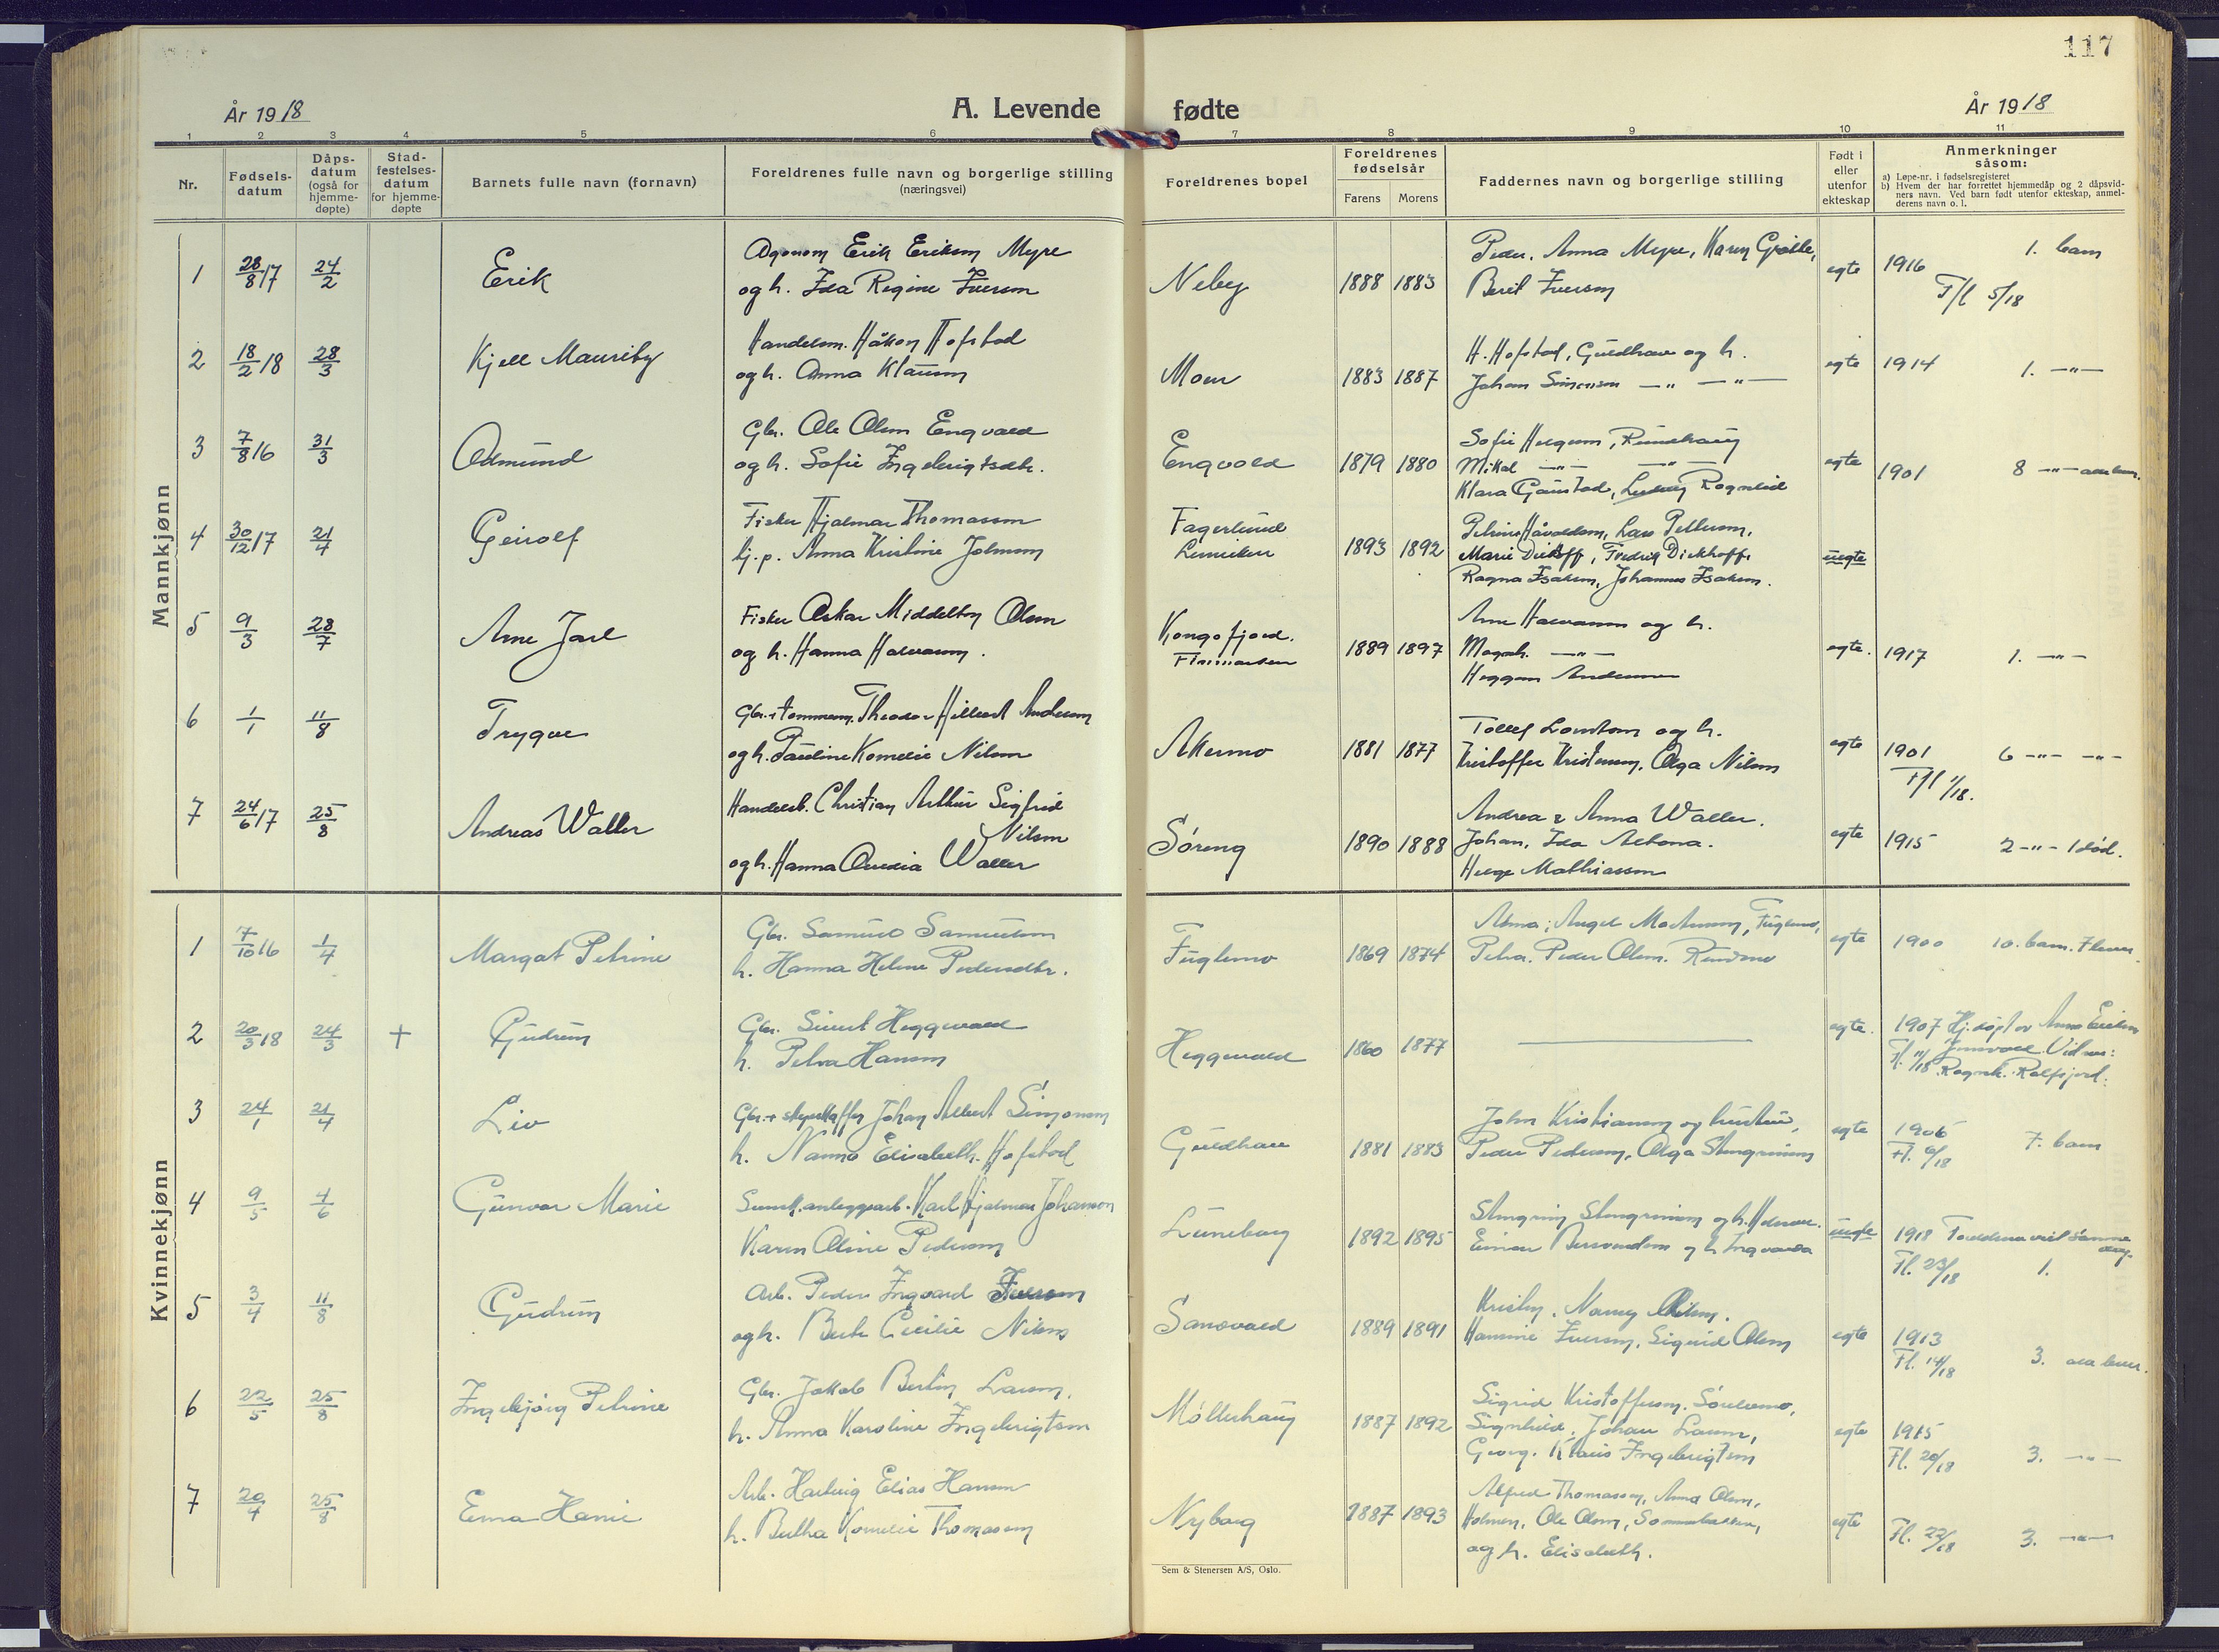 117
År 1918
A. Levende fødte
År 1918
1 2 3 4 5 6 7 8 9 10 11
Nr.
Fødsels-
datum
Dåps-
datum
(også for
hjemme-
døpte)
Stad-
festelses-
datum
for hjemme-
døpte
Barnets fulle navn (fornavn)
Foreldrenes fulle navn og borgerlige stilling
(næringsvei)
Foreldrenes bopel
Foreldrenes
fødselsår
Farens
Morens
Faddernes navn og borgerlige stilling
Født i
eller
utenfor
ekteskap
Anmerkninger
såsom:
a) Løpe-nr. i fødselsregisteret
b) Hvem der har forrettet hjemmedåp og 2 dåpsvid-
ners navn. Ved barn født utenfor ekteskap, anmel-
derens navn o. l.
Mannkjønn
1 28/8 17 24/2 Erik
Erik Eriksen Myre
og h. Ida Regine Iversen
Neby 1888 1883
Peder, Anna Myre, Karen
Berit Iversen
egte 1916 1. barn
F/l 5/18
2 18/2 18 28/3 Kjell
Handelsm. Håkon Hofstad
og h. Anna Klausen
Moen 1883 1887
H. Hofstad, Guldhav og h.
Johan Simonsen —"— —"—
egte 1914 1. —"—
3 7/8 16 31/3 Odmund
Gbr. Ole Olsen Engvold
og h. Sofie Ingebrigtsdtr.
Engvold 1879 1880
Sofie
Mikal —"— —"—
Klara Gaustad, Ragnhild
egte 1901 8 —"—
4 30/12 17 21/4 Geirolf
Fisker Hjalmar Thomassen
Anna Kristine Johnsen
Fagerlund
1893 1892
Lars Pettersen,
Marie Dickhoff, Fredrik Dickhoff,
Ragna Isaksen, Johannes Isaksen.
uegte
5 9/3 28/7 Arne Jarl
Fisker Oskar Olsen
og h. Hanna Halvorsen.
Kongsfjord.
Finmarken
1889 1897
Arne Halvorsen og h.
—"—
Andersen
egte. 1917 1. —"—
6 1/1 11/8 Trygve
Theodor Andersen
og h. Pauline Kornelie Nilsen
Akermo 1881 1877
og h.
Kristoffer Kristensen, Olga Nilsen
egte 1901 6 —"— —"—
F/l 1/18.
7 24/6 17 25/8 Andreas Waller
Christian Arthur Sigfrid
Nilsen
og h. Hanna Waller
Søreng 1890 1888
Andrea & Anna Waller.
Johan, Ida
Helge Mathiassen
egte 1915 2 —"— 1 død.
Kvinnekjønn
1 7/10 16 1/4 Margot Petrine
Gbr. Samuel Samuelsen
h. Hanna Helene Pedersdtr.
Fuglemo 1869 1874
Fuglemo,
Petra. Peder Olsen. Rundmo
egte 1900 10. barn.
2 20/3 18 24/3 + Gudrun
Gbr. Sivert Heggevold
h. Petra Hansen
Heggevold 1860 1877
egte. 1907 Hj. døpt av Anna
Fl. 11/18
3 24/1 21/4 Liv
Johan Albert Simonsen
h. Nanna Elisabeth Hofstad
Guldhav 1881 1883
John Kristiansen og hustru,
Peder Pedersen, Olga Stengrimsen
egte 1906 7. barn
Fl. 6/18
4 9/5 4/6 Gunvor Marie
Karl Hjalmar Johanson
Karen Oline Pedersen
Luneborg 1892 1895
Stengrim Stengrimsen og h.
uegte 1918
Fl. 23/18 1.
5 3/4 11/8 Gudrun
Arb. Peder Ingvard Iversen
og h. Berte Cecilie Nilsen
Sandvold 1889 1891
Iversen, Sigrid Olsen
egte 1913
Fl. 14/18 3.
6 22/5 25/8 Ingebjørg Petrine
Gbr. Jakob Bertin Larsen,
h. Anna Karoline Ingebrigtsen
Møllehaug 1887 1892
Sigrid Kristoffersen,
Signhild, Johan Larsen,
Georg, Klaus Ingebrigtsen
egte 1915
Fl. 20/18 3. —"—
7 20/4 25/8 Erna
Arb. Hartvig Elias Hansen
h. Bertha Kornelie Thomassen
Nyborg 1887 1893
Alfred Thomassen, Anna Olsen,
Holmen, Ole Olsen,
og h. Elisabeth.
egte
Fl. 22/18 3. —"—
Sem & Stenersen A/S, Oslo.